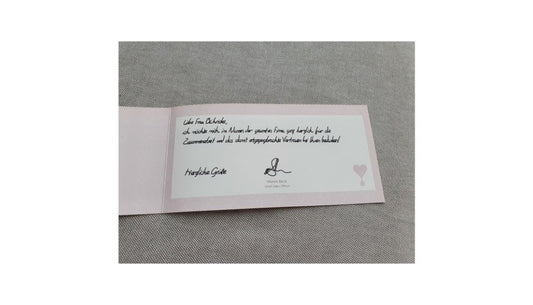 Liebe Frau
ich möchte mich im Namen der gesamten Firma ganz herzlich für die
Zusammenarbeit und das damit entgegengebrachte Vertrauen bei Ihnen bedanken!
Herzliche Grüße